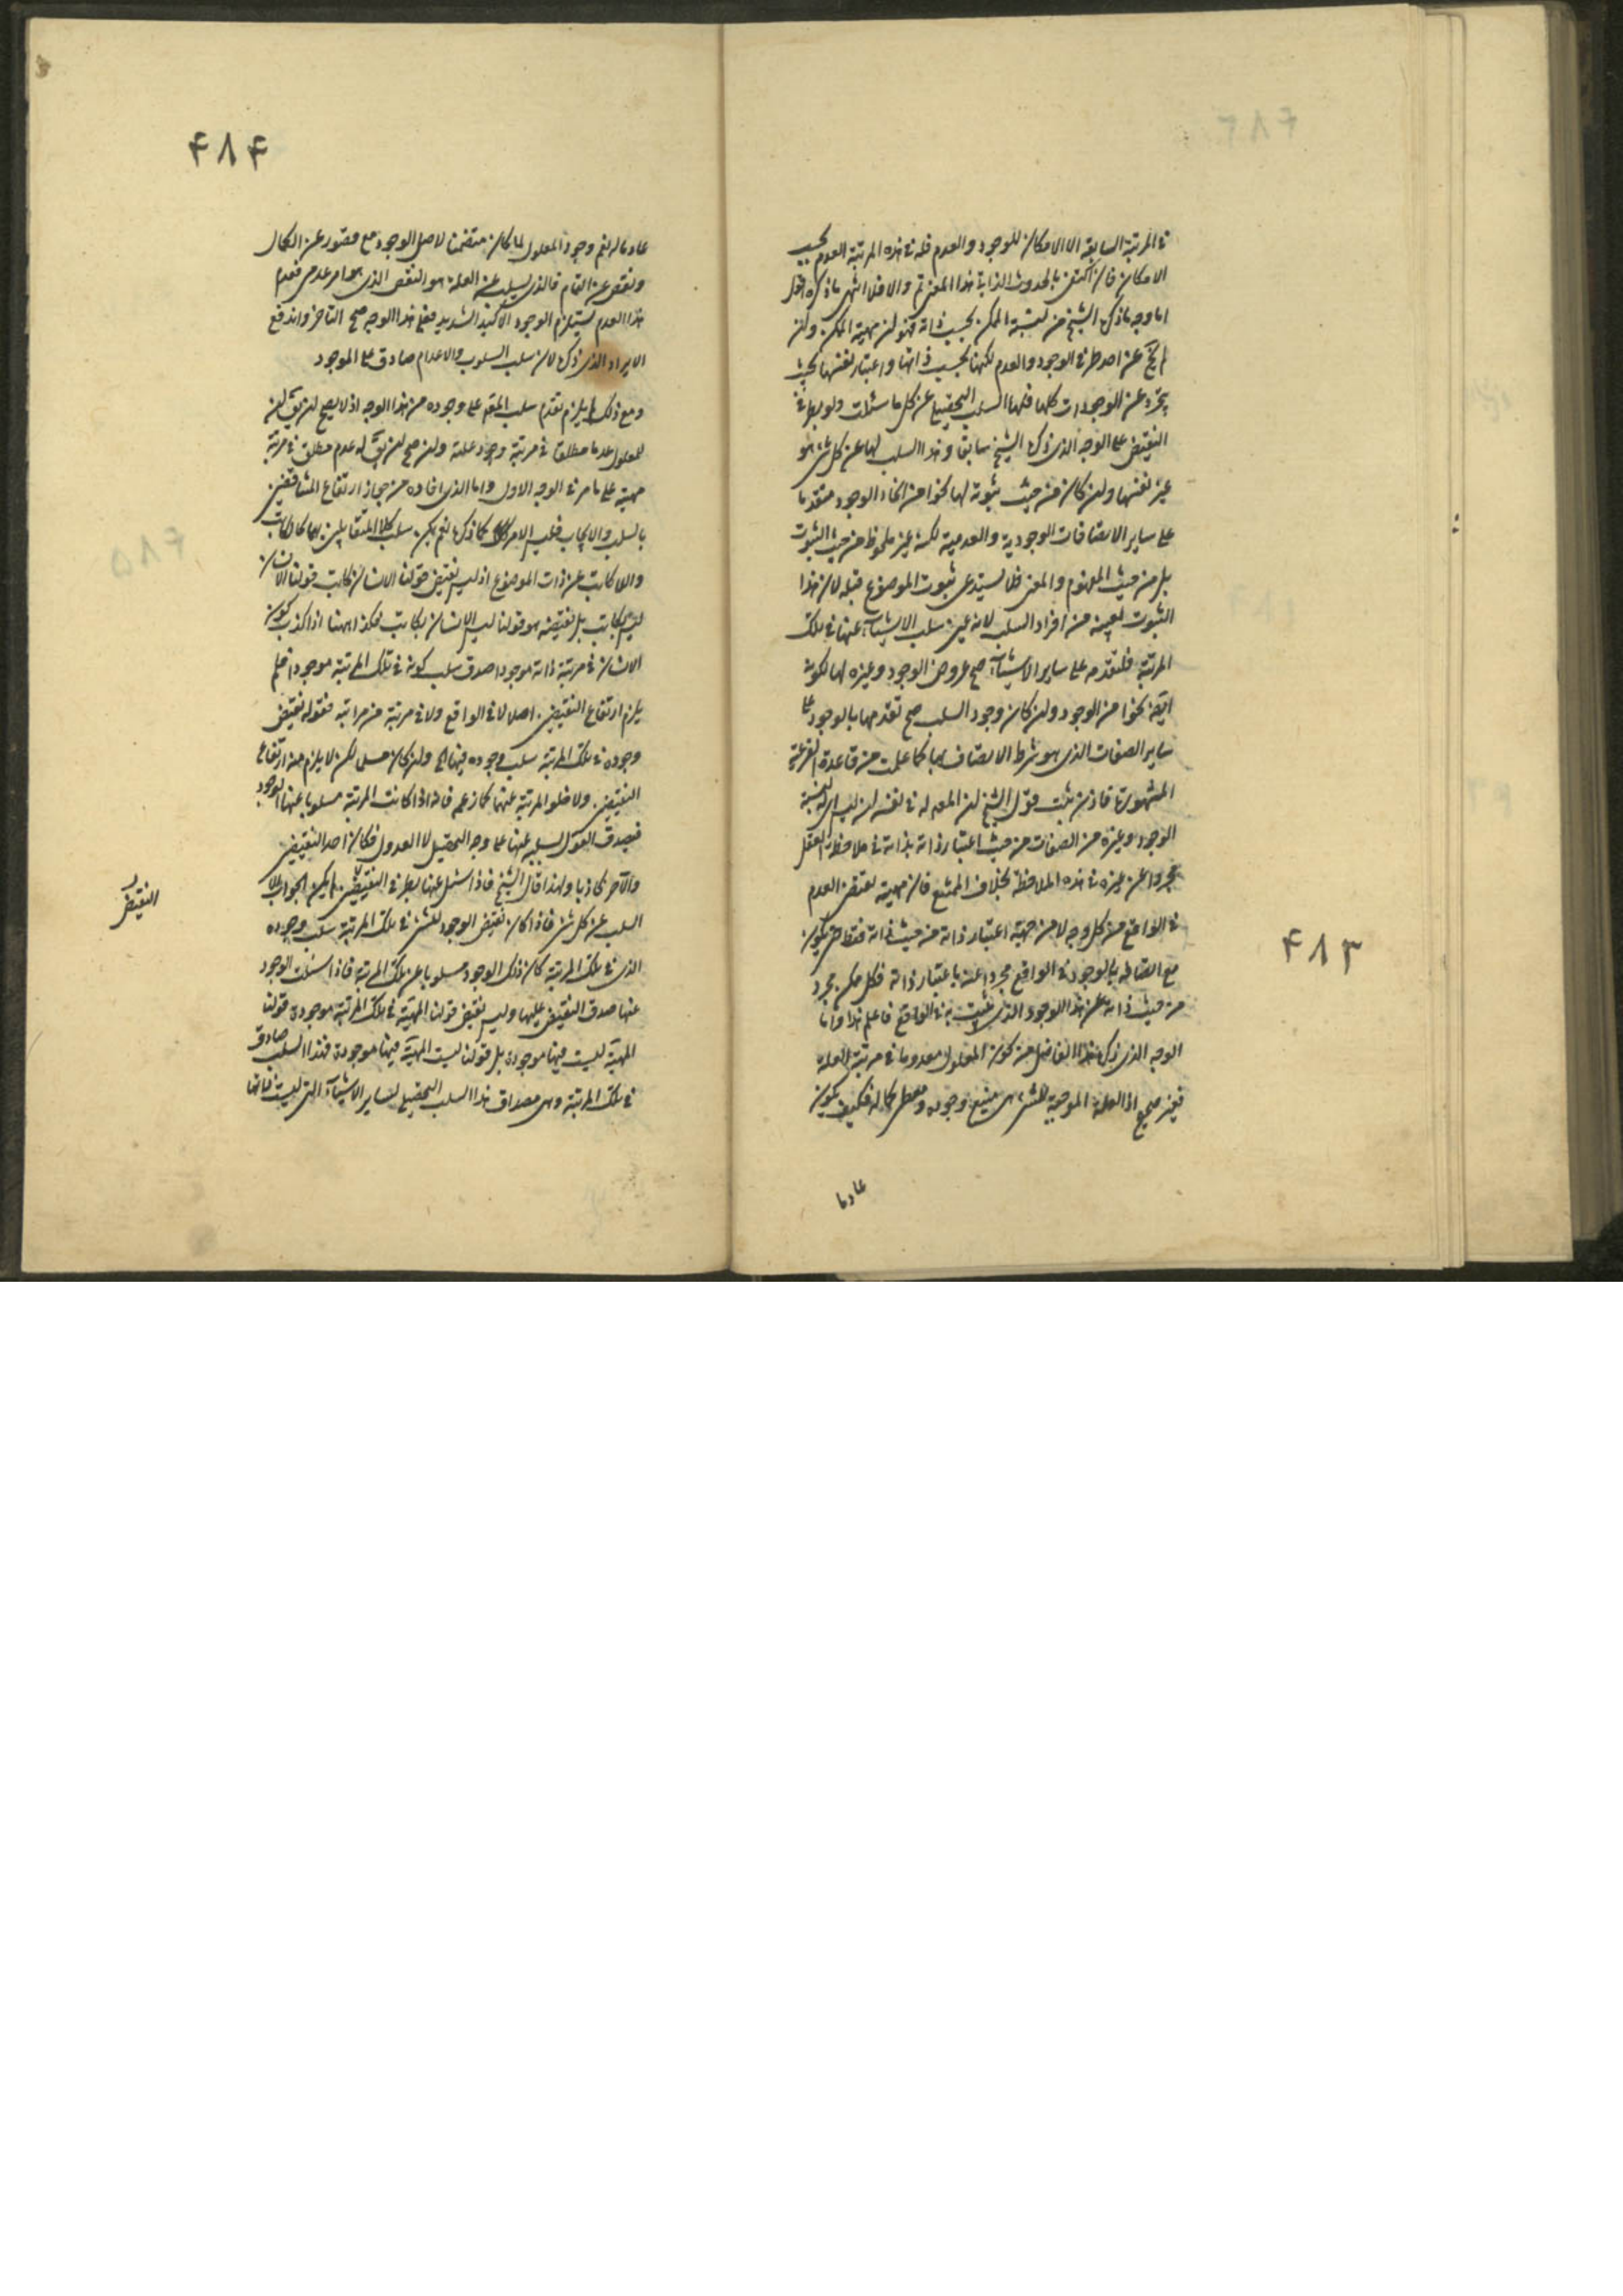 في المرتبة السابقة الا الامكان للوجود والعدم فله في هذه المرتبة العدم بحسب
الامكان فان اكتفى بالحدوث الذاتي بهذا المعنى تم والا فلا انتهى ما ذكره اقول
اما وجه ما ذكره الشيخ من نسبة الممكن بحسب ذاته فهو ان مهية الممكن وان
لم يخ عن احد طرفي الوجود والعدم لكنها بحسب ذاتها واعتبار نفسها بحيث
يتجرد عن الوجودات كلها فلها السلب التحصيلي عن كل ما سئلت ولو بطرفي
النقيض على الوجه الذي ذكره الشيخ سابقا وهذا السلب لها عن كل شئ هو
غير نفسها وان كان من حيث ثبوته لها نحوا من انحاء الوجود متقدما
على ساير الاتصافات الوجودية والعدمية لكنه غير ملحوظ من حيث الثبوت
بل من حيث المفهوم والمعنى فلا يستدعى ثبوت الموضوع قبله لان هذا
الثبوت بعينه من افراد السلب لانه عين سلب الاشياء عنها في تلك
المرتبة فلتقدمه على ساير الاشياء صح عروض الوجود وغيره لها لكونه
ايضا نحوا من الوجود وان كان وجود السلب صح تقدمها بالوجود على
ساير الصفات الذي هو شرط الاتصاف بها كما علمت من قاعدة الفرعية
المشهورة فاذن ثبت قول الشيخ ان المعلول له في نفسه ان ليس اي بالنسبة
الوجود وغيره من الصفات من حيث اعتبار ذاته بذاته في ملاحظة العقل
مجردا عن غيره في هذه الملاحظة بخلاف الممتنع فان مهيته تقتضي العدم
في الواقع من كل وجه لا من جهة اعتبار ذاته من حيث ذاته فقط حتى يكون
مع اتصافه بالوجود في الواقع مجردا عنه باعتبار ذاته فكل ممكن مجرد
من حيث ذاته عن هذا الوجود الذي يثبت به في الواقع فاعلم هذا واما
الوجه الذي ذكره هذا الفاضل من كون المعلول معدوما في مرتبة العلة
فغير صحيح اذ العلة الموجبة للشئ هي منبع وجوده ومعطي كماله فكيف يكون
عادما
٤٨٣
٤٨٤
عادما له نعم وجود المعلول لما كان متضمنا لاصل الوجود مع قصور عن الكمال
ونقص عن التمام فالذي يسلب عن العلة هو النقص الذي هو امر عدمي فعدم
هذا العدم يستلزم الوجود الاكيد الشديد فعلى هذا الوجه صح التاخر واندفع
الايراد الذي ذكره لان سلب السلوب والاعدام صادق على الموجود
ومع ذلك لم يلزم تقدم سلب المعلول على وجوده من هذا الوجه اذ لا يصح ان يق ان
للمعلول عدما مطلقا في مرتبة وجود علته وان صح ان يق له عدم مطلق في مرتبة
مهيته على ما مر في الوجه الاول واما الذي افاده من جواز ارتفاع المتناقضين
بالسلب والايجاب فليس الامر كما ذكره نعم يمكن سلب كلا المتقابلين بهما كالكاتب
واللا كاتب عن ذات الموضوع اذ ليس نقيض قولنا الانسان كاتب قولنا الانسان
ليس بكاتب بل نقيضه هو قولنا ليس الانسان بكاتب فهكذا ههنا اذا كذب كون
الانسان في مرتبة ذاته موجودا صدق سلب كونه في تلك المرتبة موجودا فلم
يلزم ارتفاع النقيضين اصلا لا في الواقع ولا في مرتبة من مراتبه فقوله نقيض
وجوده في تلك المرتبة سلب وجوده فيها الخ وان كان مسلم لكن لا يلزم منه ارتفاع
النقيضين ولا خلو المرتبة عنهما كما زعمه فانه اذا كانت المرتبة مسلوبا عنها الوجود
فيصدق القول بسلبه عنها على وجه التحصيل لا العدول فكان احد النقيضين
والآخر كاذبا ولهذا قال الشيخ فاذا سئل عنها بطرفي النقيضين لم يكن الجواب الا
السلب عن كل شئ فاذا كان نقيض الوجود للشئ في تلك المرتبة سلب وجوده
الذي في تلك المرتبة كان ذلك الوجود مسلوبا عن تلك المرتبة فاذا سئلت الوجود
عنها صدق النقيض عليها وليس نقيض قولنا المهية في تلك المرتبة موجودة قولنا
المهية ليست فيها موجودة بل قولنا ليست المهية فيها موجودة فهذا السلب صادق
في تلك المرتبة وهي مصداق هذا السلب التحصيلي لساير الاشياء التي ليست ذاتها
النقيض